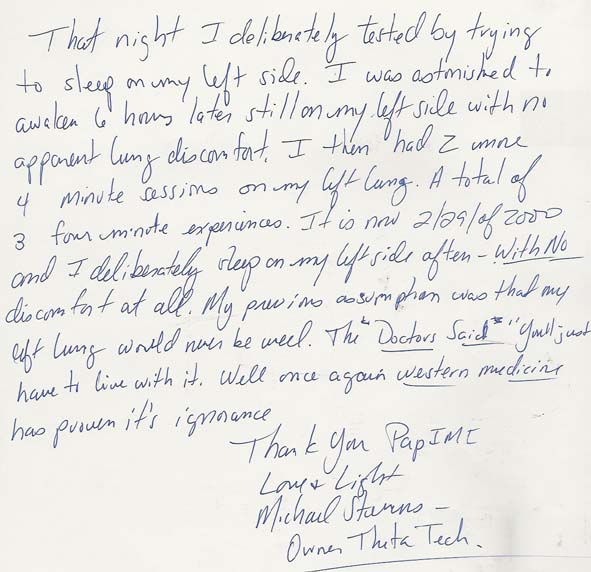 That night I deliberately tested by trying
to sleep on my left side. I was astonished to
awaken 6 hours later still on my left side with no
apparent lung discomfort. I then had 2 more
4 minute sessions on my left lung. A total of
3 four minute experiences. It is now 2/29/of 2000
and I deliberately sleep on my left side often - With No
discomfort at all. My previous assumption was that my
left lung would never be well. The "Doctors Said" "You'll just
have to live with it. Well once again western medicine
has proven it's ignorance
Thank You PapIMI
Love & Light
Michael -
Owner Theta Tech.